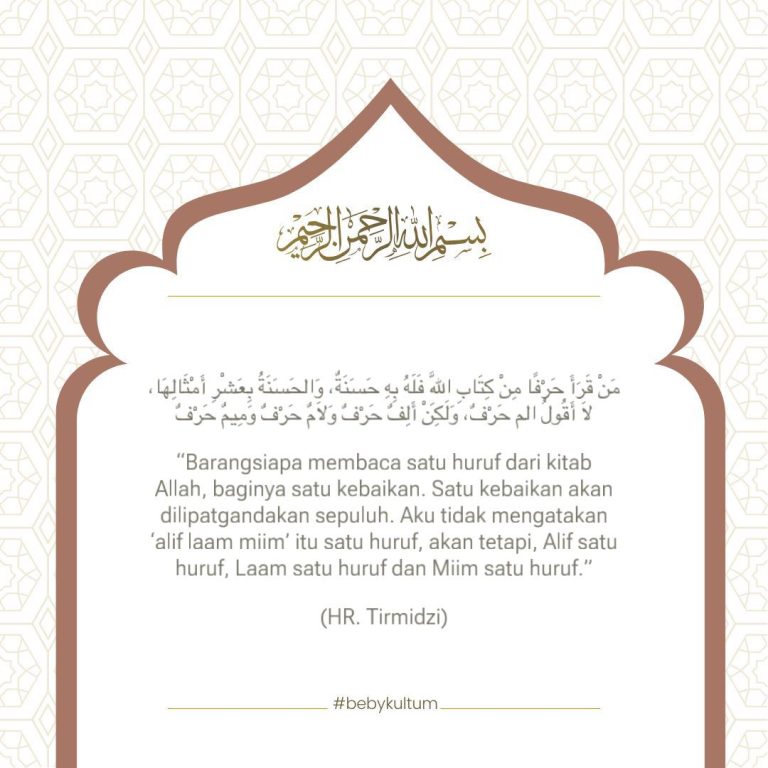 بِسْمِ اللهِ الرَّحْمَنِ الرَّحِيْمِ
مَنْ قَرَأَ حَرْفًا مِنْ كِتَابِ اللَّهِ فَلَهُ بِهِ حَسَنَةٌ، وَالحَسَنَةُ بِعَشْرِ أَمْثَالِهَا،
لاَ أَقُولُ الم حَرْفٌ، وَلَكِنْ أَلِفٌ حَرْفٌ وَلاَمٌ حَرْفٌ وَمِيمٌ حَرْفٌ
“Barangsiapa membaca satu huruf dari kitab
Allah, baginya satu kebaikan. Satu kebaikan akan
dilipatgandakan sepuluh. Aku tidak mengatakan
‘alif laam miim’ itu satu huruf, akan tetapi, Alif satu
huruf, Laam satu huruf dan Miim satu huruf.”
(HR. Tirmidzi)
#bebykultum